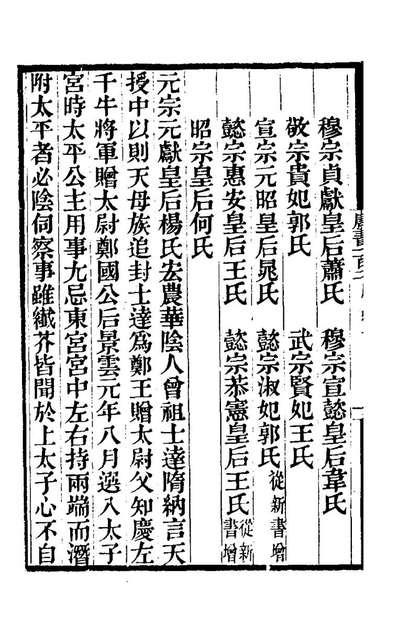 穆宗貞獻皇后蕭氏　穆宗宣懿皇后韋氏
敬宗貴妃郭氏　武宗賢妃王氏
宣宗元昭皇后晁氏　懿宗淑妃郭氏從新書增
懿宗惠安皇后王氏　懿宗恭憲皇后王氏從新書增
昭宗皇后何氏
元宗元獻皇后楊氏宏農華陰人曾祖士達隋納言天
授中以則天母族追封士達為鄭王贈太尉父知慶左
千牛將軍贈太尉鄭國公后景雲元年八月選入太子
宮時太平公主用事尢忌東宮宮中左右持兩端而潛
附太平者必陰伺察事雖纎芥皆聞於上太子心不自